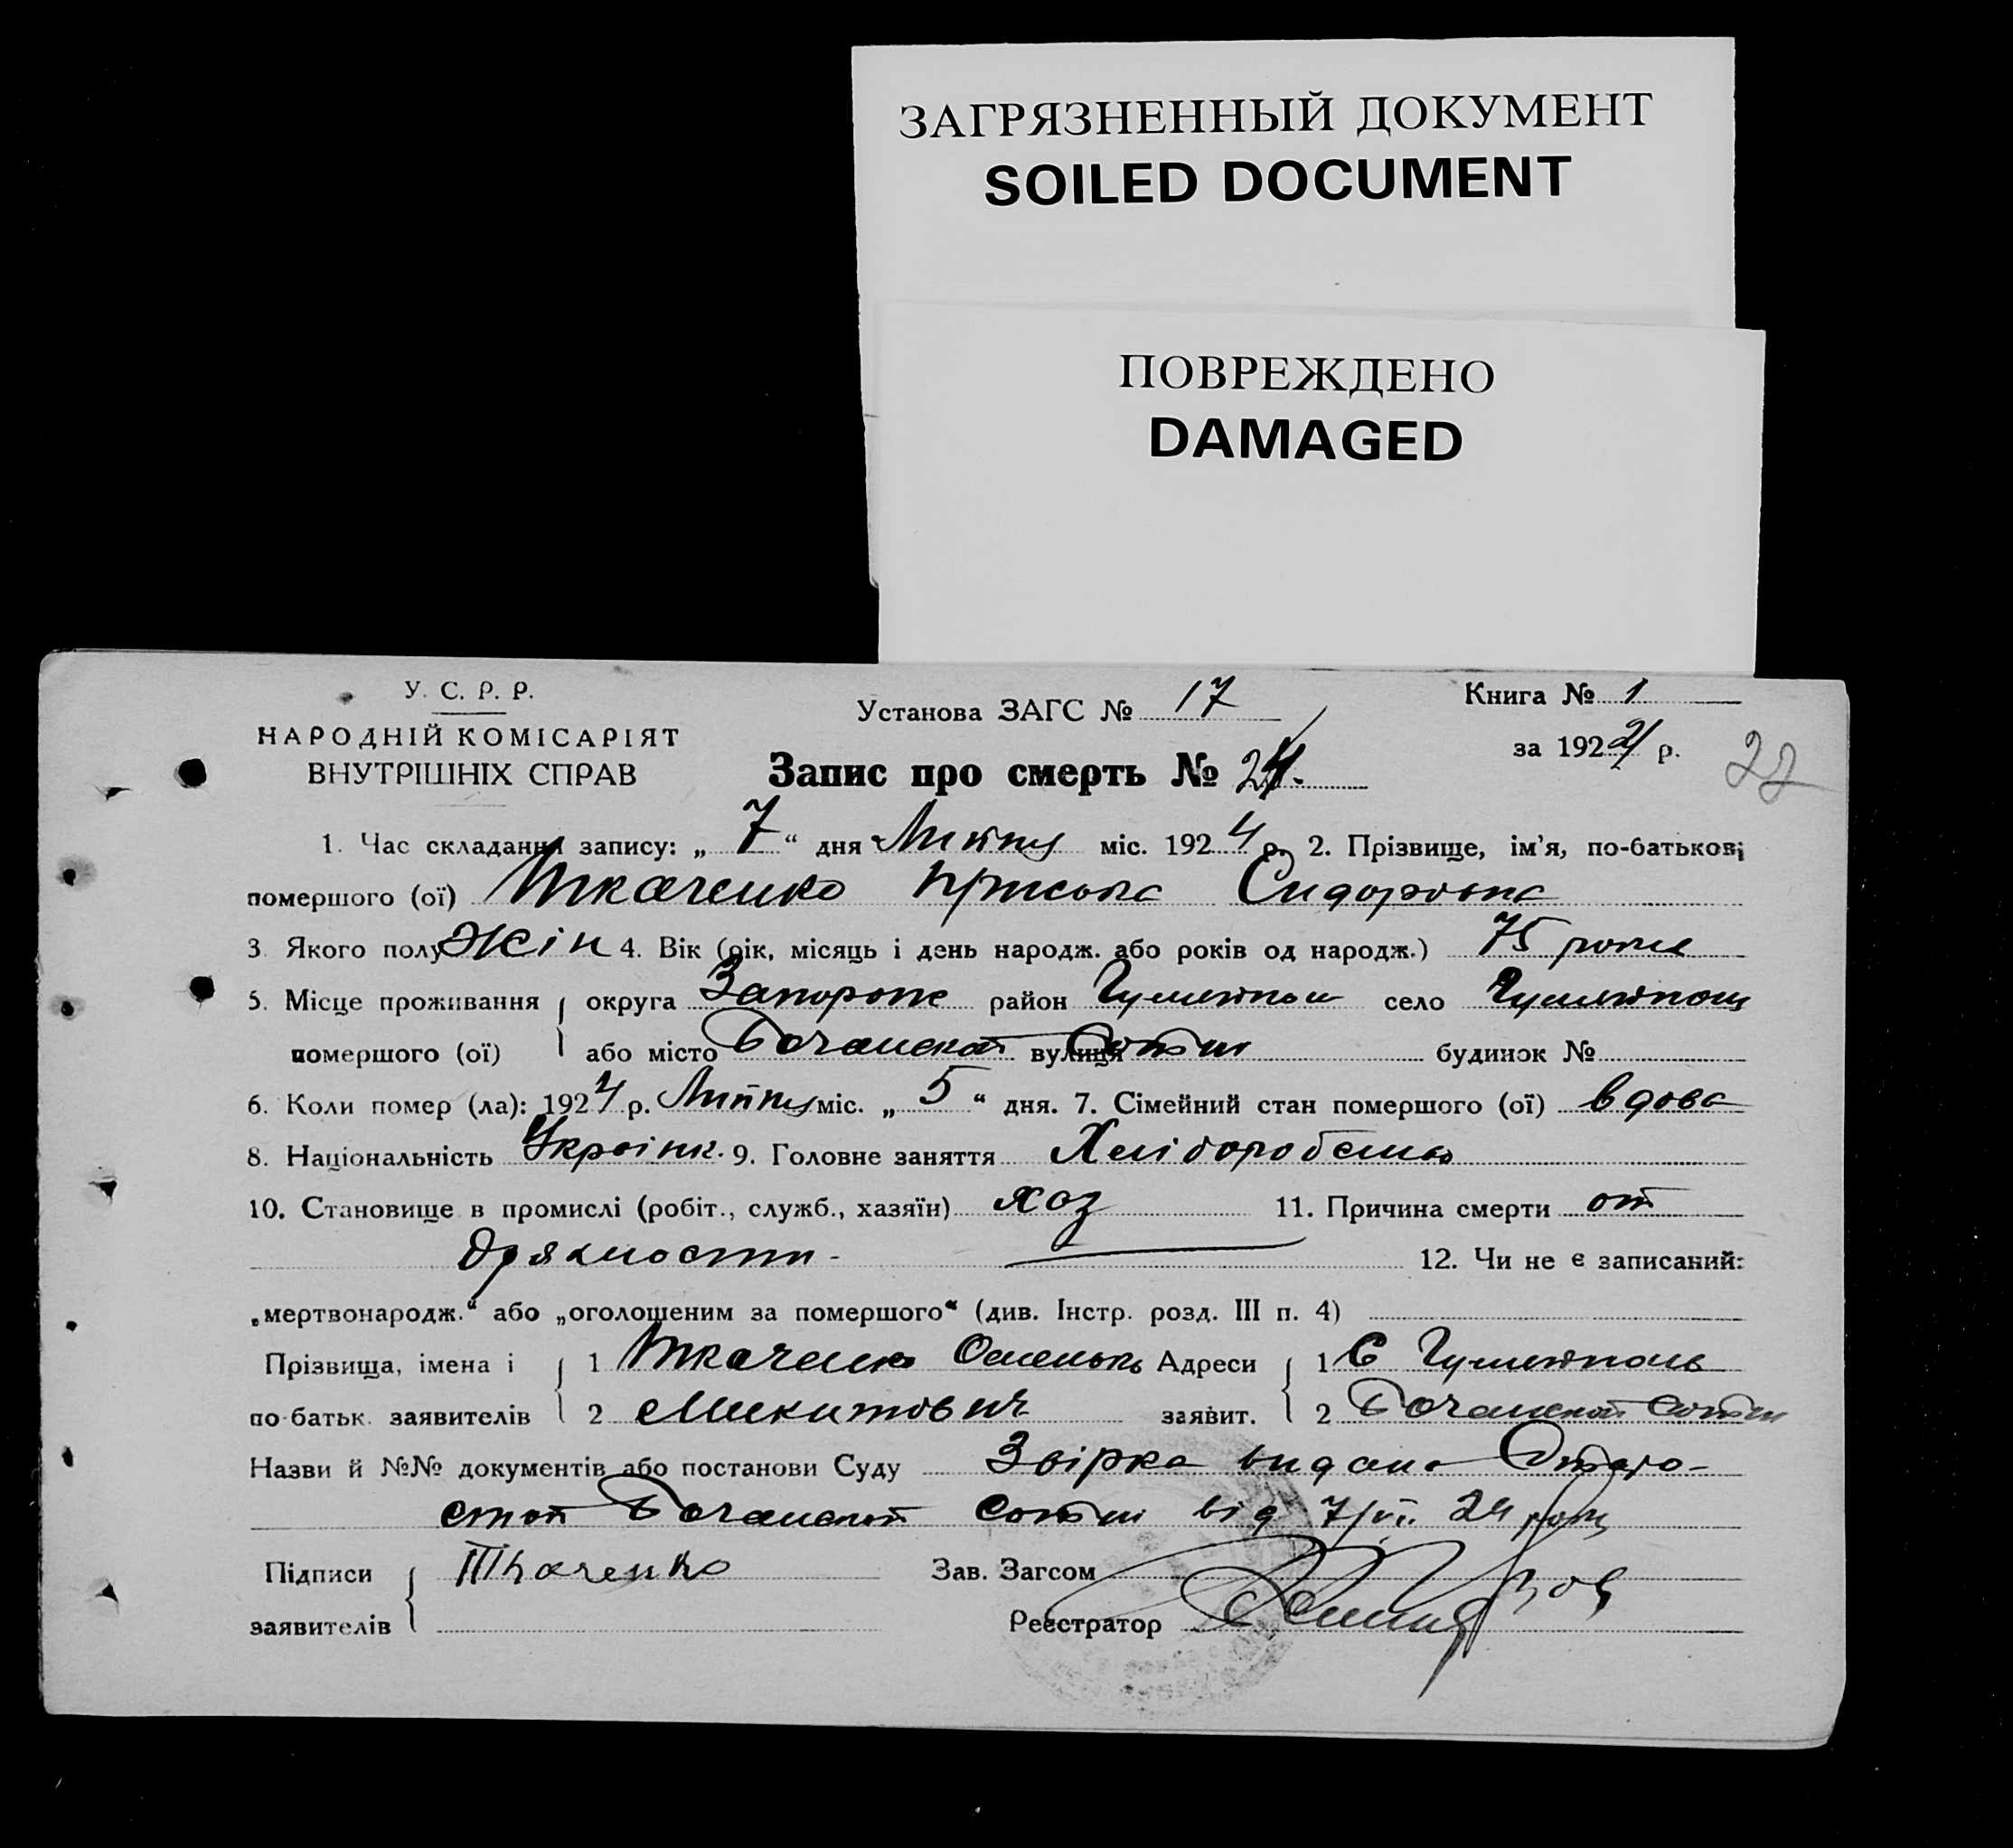 ЗАГРЯЗНЕННЫЙ ДОКУМЕНТ
SOILED DOCUMENT
ПОВРЕЖДЕНО
DAMAGED
У. С. Р. Р.
НАРОДНІЙ КОМІСАРІЯТ
ВНУТРІШНІХ СПРАВ
Установа ЗАГС № 17
Книга № 1
за 1924 р.
Запис про смерть № 24.
22
1. Час складання запису: „ 7 “ дня Липня міс. 1924 р. 2. Прізвище, ім'я, по-батькові
помершого (ої) Ткаченко Пріська Сидоровна
3. Якого полу жін 4. Вік (рік, місяць і день народж. або років од народж.) 75 роки
5. Місце проживання округа Запорож район Гуляйпол село Гуляйполь
помершого (ої) або місто Бочанской вулиця Сотни будинок №
6. Коли помер (ла): 1924 р. Липня міс. „ 5 “ дня. 7. Сімейний стан помершого (ої) вдова
8. Національність Україн. 9. Головне заняття Хлібороб
10. Становище в промислі (робіт., служб., хазяїн) хоз 11. Причина смерти от
дряхлости - 12. Чи не є записаний:
„мертвонародж.“ або „оголошеним за помершого“ (див. Інстр. розд. III п. 4)
Прізвища, імена і 1 Ткаченко Омелько Адреси 1 С Гуляйполь
по-батьк. заявителів 2 Микитович заявит. 2 Бочанской Сотни
Назви й №№ документів або постанови Суду Звірка видана Старо-
стой Бочанской Сотні від 7/VII. 24 року
Підписи Ткаченко Зав. Загсом
заявителів Реєстратор